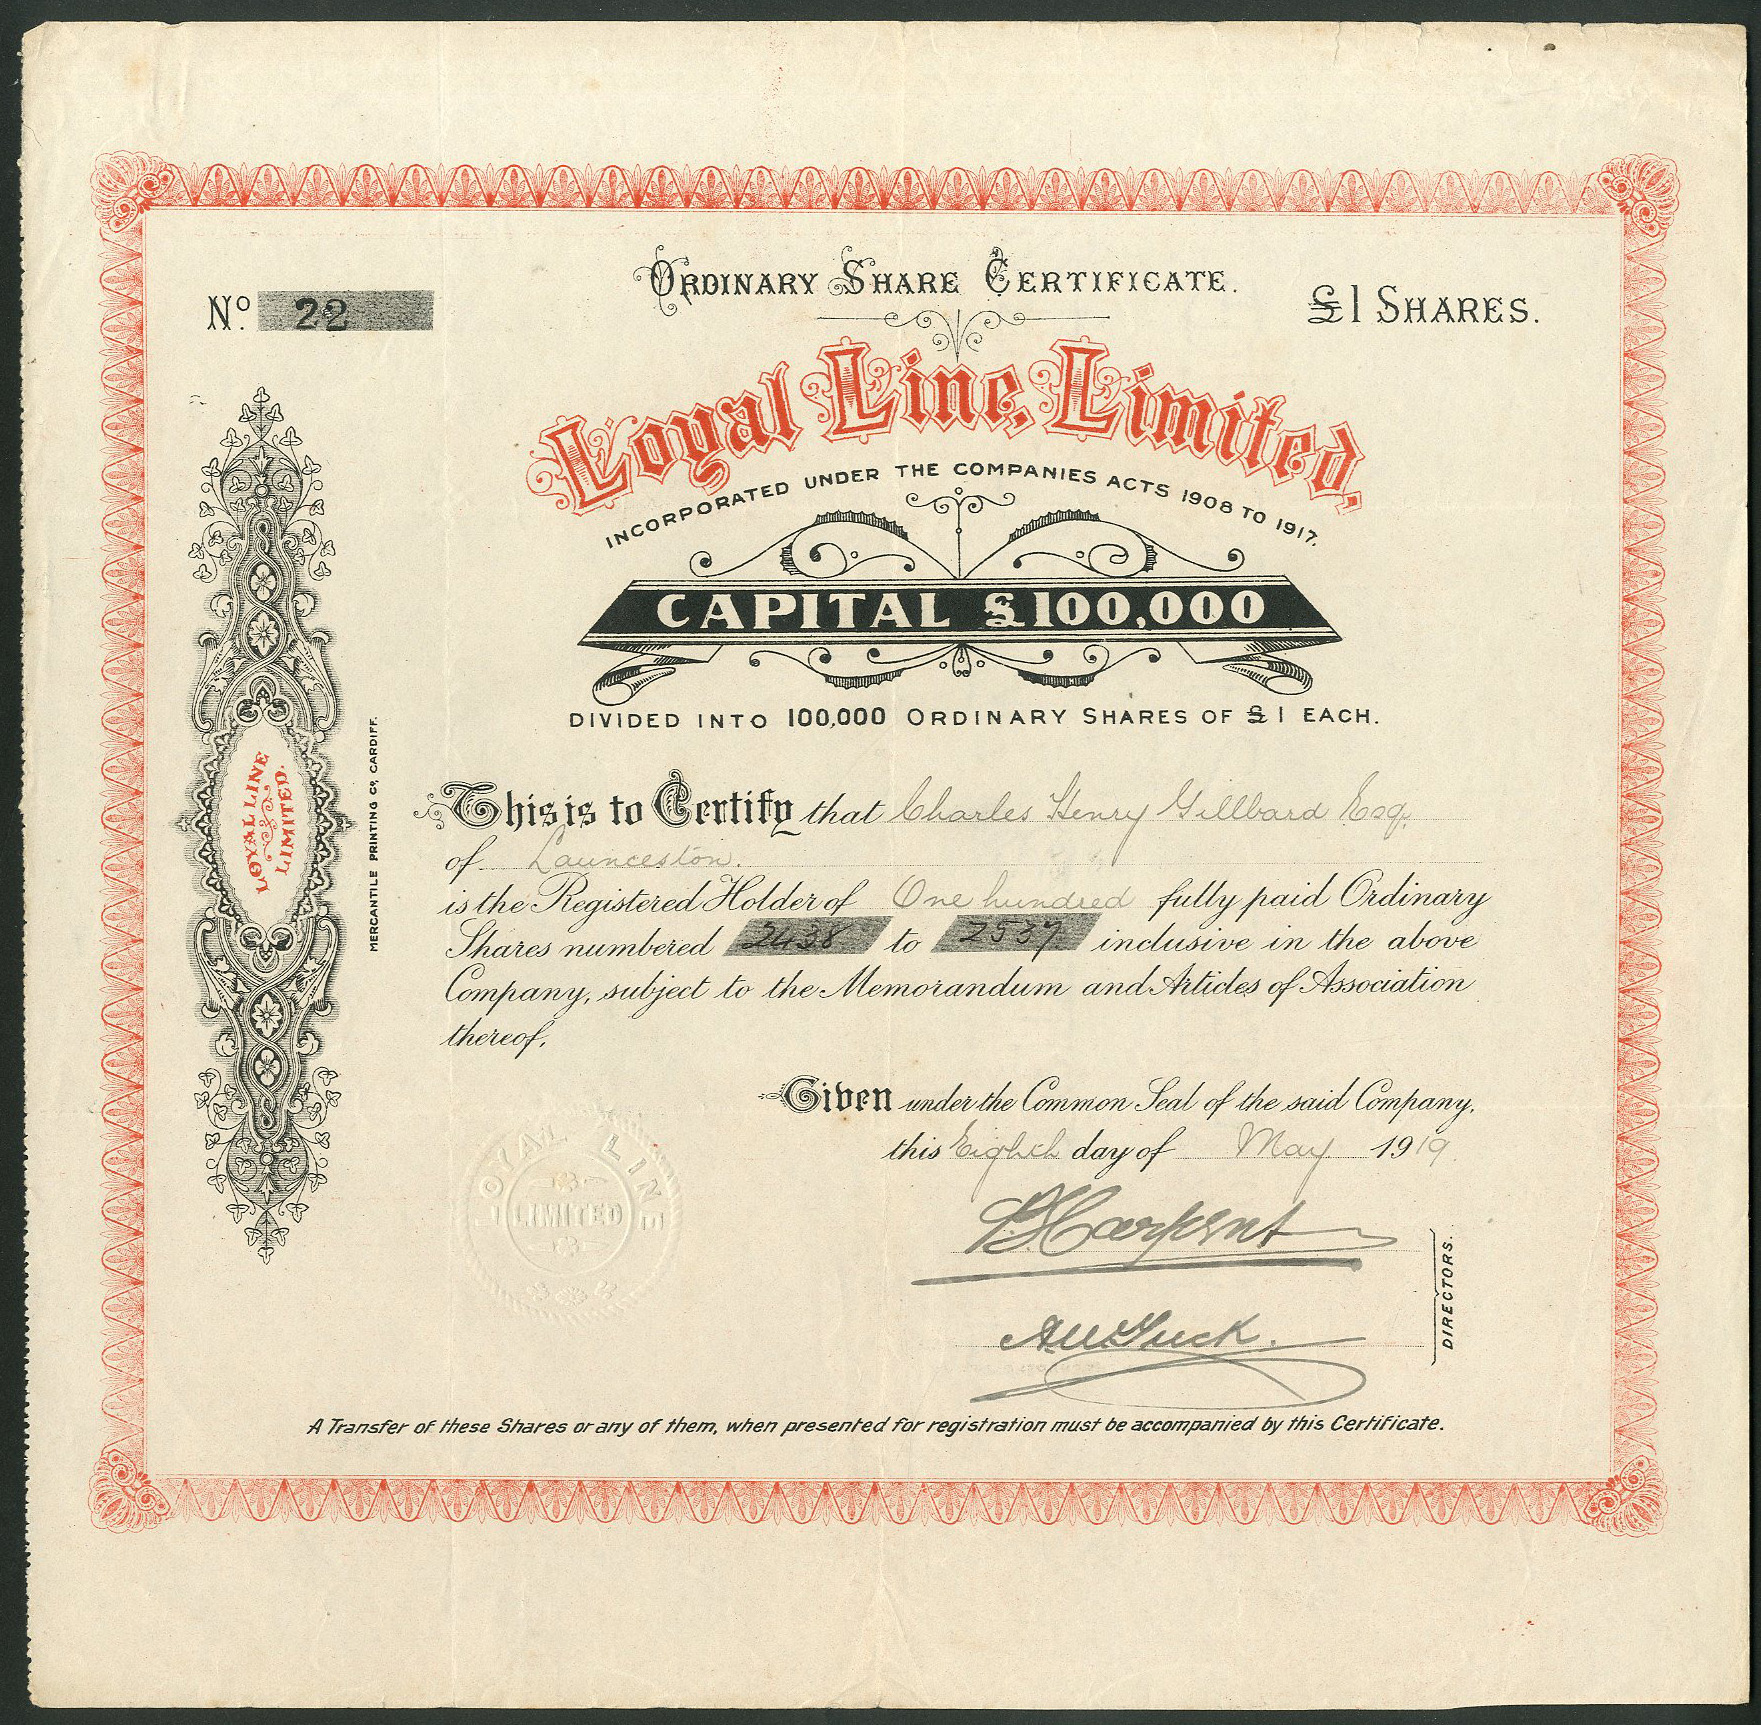 ORDINARY SHARE CERTIFICATE.
No. 22
£1 SHARES.
Loyal Line, Limited,
INCORPORATED UNDER THE COMPANIES ACTS 1908 TO 1917.
CAPITAL £100,000
DIVIDED INTO 100,000 ORDINARY SHARES OF £1 EACH.
LOYAL LINE
LIMITED.
MERCANTILE PRINTING Co, CARDIFF.
This is to Certify that Charles Henry Gillbard Esq.
of Launceston.
is the Registered Holder of One hundred fully paid Ordinary
Shares numbered 2438 to 2537 inclusive in the above
Company, subject to the Memorandum and Articles of Association
thereof.
Given under the Common Seal of the said Company,
this Eighth day of May 1919
LOYAL LINE
LIMITED
DIRECTORS.
A Transfer of these Shares or any of them, when presented for registration must be accompanied by this Certificate.